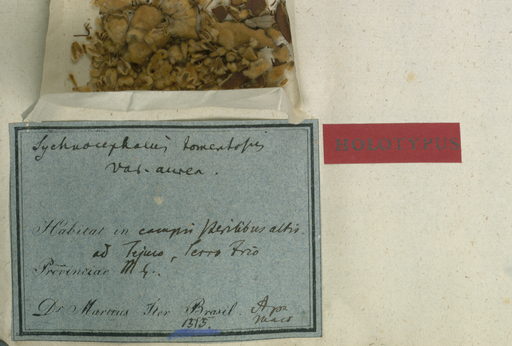 Lychnocephalus tomentosus
var. aurea.
HOLOTYPUS
Habitat in campis sterilibus altis
ad Tejuco, Serro Frio
Provinciae M. G.
Dr. Martius Iter Brasil.
1315.